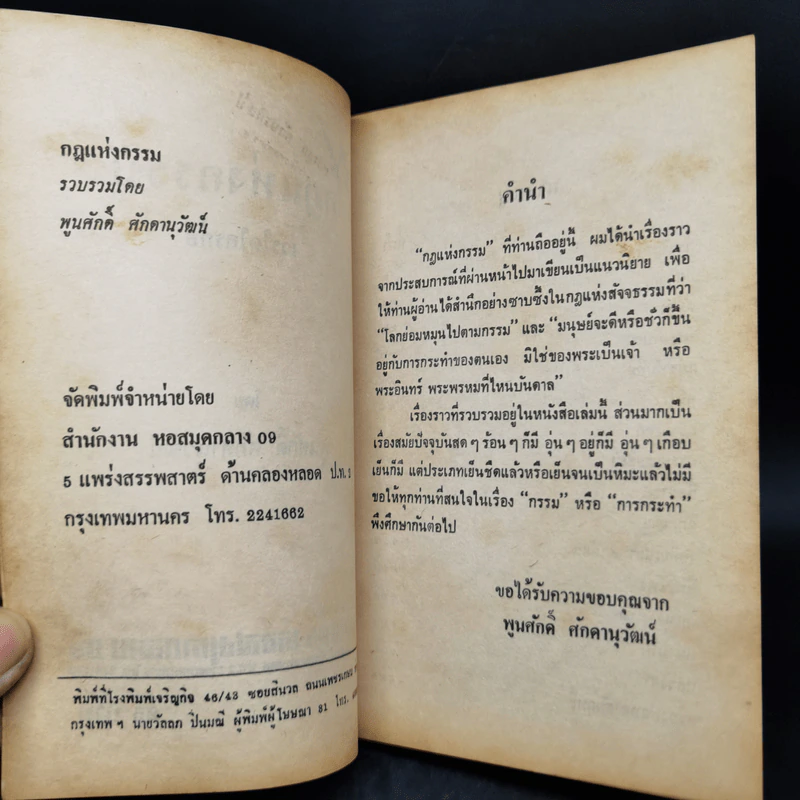 กฎแห่งกรรม
รวบรวมโดย
พูนศักดิ์ ศักดานุวัฒน์
จัดพิมพ์จำหน่ายโดย
สำนักงาน หอสมุดกลาง 09
5 แพร่งสรรพสาตร์ ด้านคลองหลอด ป.ท. 2
กรุงเทพมหานคร โทร. 2241662
พิมพ์ที่โรงพิมพ์เจริญกิจ 46/43 ซอยสีนวล ถนนเพชรเกษม
กรุงเทพ ฯ นายวัลลภ ปิ่นมณี ผู้พิมพ์ผู้โฆษณา 21 โทร.
คำนำ
“กฎแห่งกรรม” ที่ท่านถืออยู่นี้ ผมได้นำเรื่องราว
จากประสบการณ์ที่ผ่านหน้าไปมาเขียนเป็นแนวนิยาย เพื่อ
ให้ท่านผู้อ่านได้สำนึกอย่างซาบซึ้งในกฎแห่งสัจจธรรมที่ว่า
“โลกย่อมหมุนไปตามกรรม” และ “มนุษย์จะดีหรือชั่วก็ขึ้น
อยู่กับการกระทำของตนเอง มิใช่ของพระเป็นเจ้า หรือ
พระอินทร์ พระพรหมที่ไหนบันดาล”
เรื่องราวที่รวบรวมอยู่ในหนังสือเล่มนี้ ส่วนมากเป็น
เรื่องสมัยปัจจุบันสด ๆ ร้อน ๆ ก็มี อุ่น ๆ อยู่ก็มี อุ่น ๆ เกือบ
เย็นก็มี แต่ประเภทเย็นชืดแล้วหรือเย็นจนเป็นหิมะแล้วไม่มี
ขอให้ทุกท่านที่สนใจในเรื่อง “กรรม” หรือ “การกระทำ”
พึงศึกษากันต่อไป
ขอได้รับความขอบคุณจาก
พูนศักดิ์ ศักดานุวัฒน์